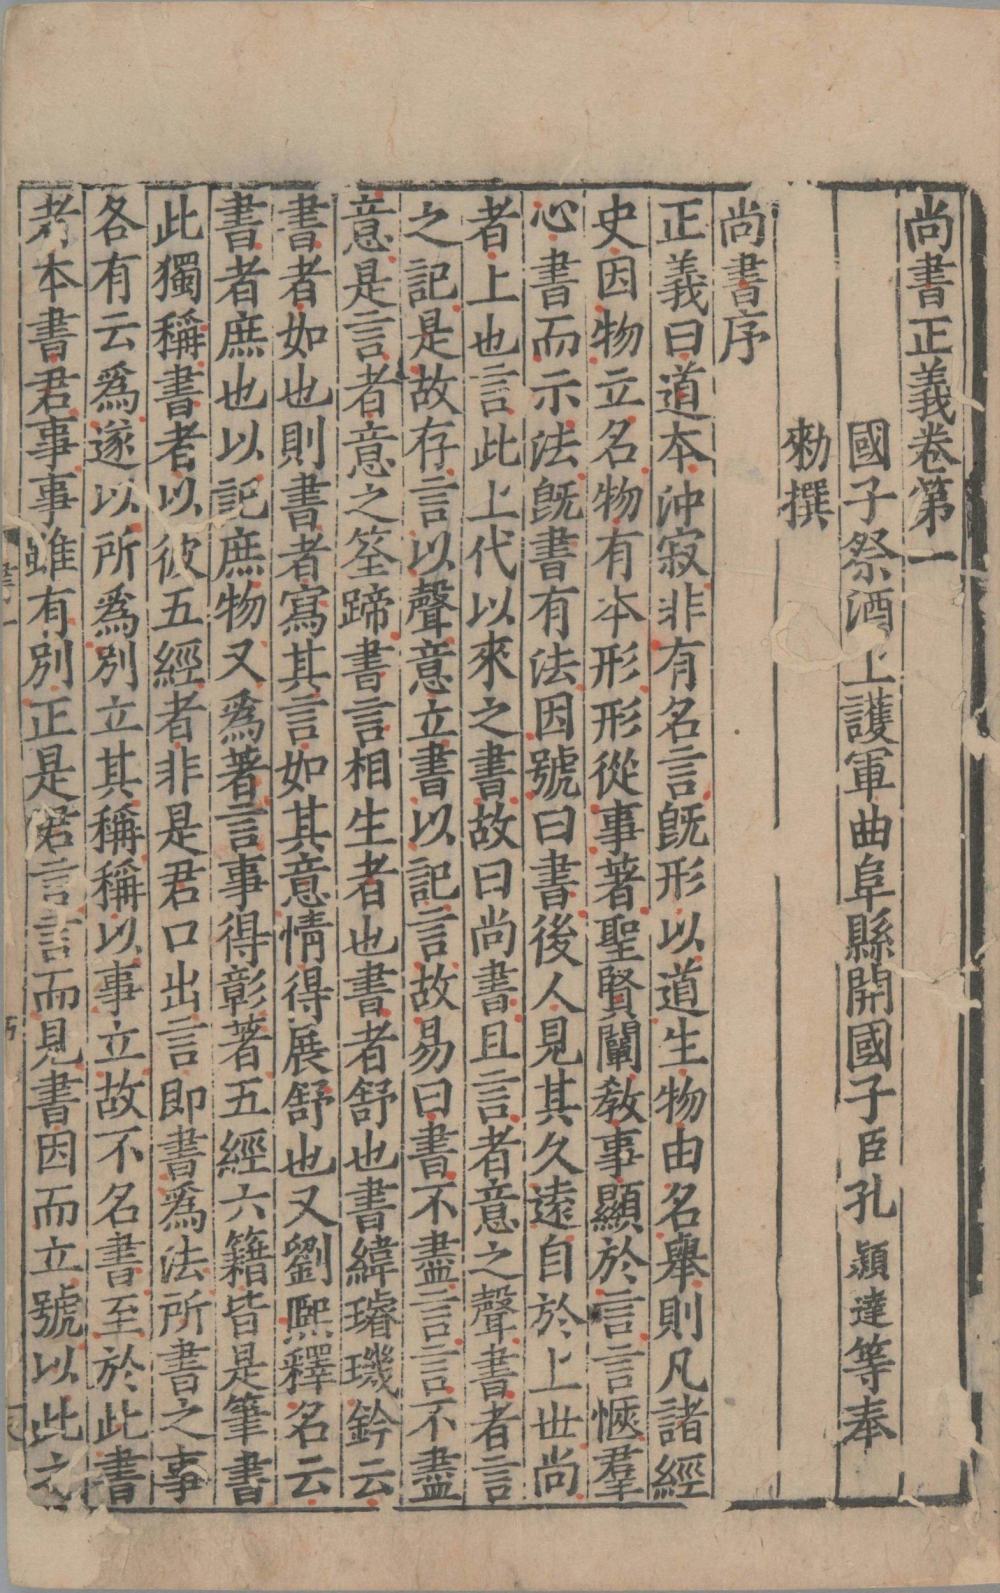 尚書正義卷第一
國子祭酒上護軍曲阜縣開國子臣孔穎達等奉
勑撰
尚書序
正義曰道本沖寂非有名言旣形以道生物由名舉則凡諸經
史因物立名物有本形形從事著聖賢闡敎事顯於言言愜羣
心書而示法旣書有法因號曰書後人見其久遠自於上世尚
者上也言此上代以來之書故曰尚書且言者意之聲書者言
之記是故存言以聲意立書以記言故易曰書不盡言言不盡
意是言者意之筌蹄書言相生者也書者舒也書緯璿璣鈐云
書者如也則書者寫其言如其意情得展舒也又劉熙釋名云
書者庶也以記庶物又爲著言事得彰著五經六籍皆是筆書
此獨稱書者以彼五經者非是君口出言即書爲法所書之事
各有云爲遂以所爲別立其稱稱以事立故不名書至於此書
者本書君事事雖有別正是君言言而見書因而立號以此之